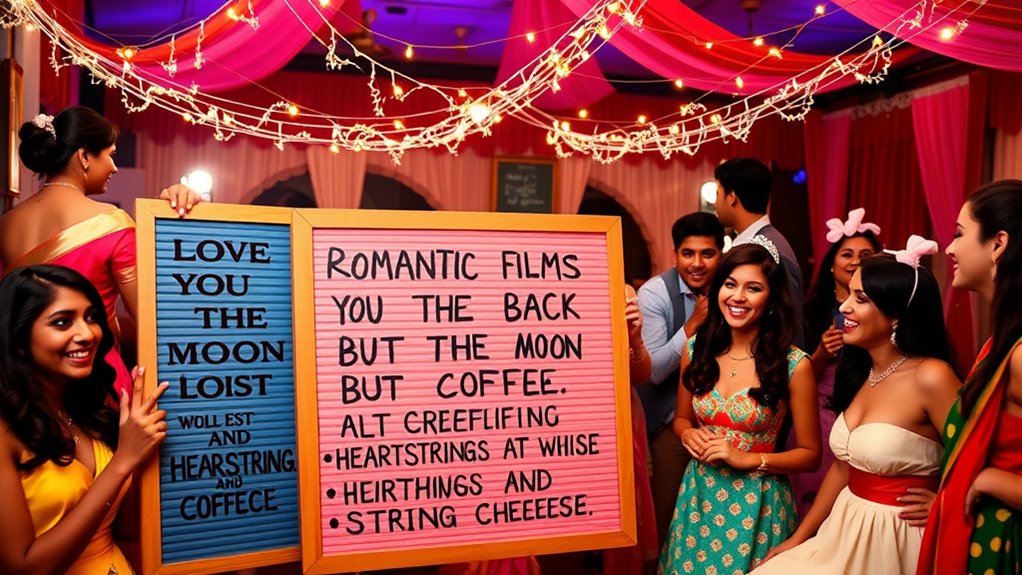 LOVE
YOU
THE
MOON
LOIST
WOLL EST
AND
HEARSTRING
AND
COFFECE
ROMANTIC FILMS
YOU THE BACK
BUT THE MOON
BUT COFFEE.
ALT CREEFLIFING
• HEARTSTRINGS AT WHISE
• HEIRTHINGS AND
• STRING CHEEESE.